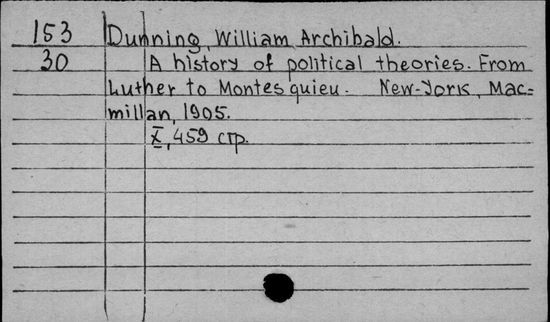 153 Dunning, William Archibald.
30 A history of political theories. From
Luther to Montesquieu. New-York, Mac=
millan, 1905.
X, 459 стр.